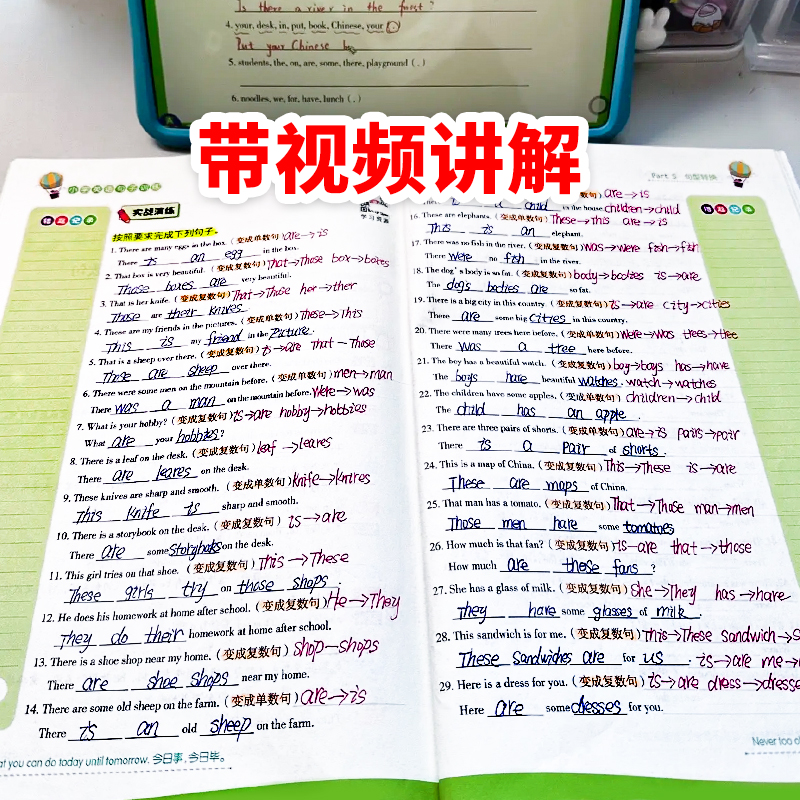 Is there a river in the forest?
4. your, desk, in, put, book, Chinese, your (.)
Put your Chinese b
5. students, the, on, are, some, there, playground ( . )
6. noodles, we, for, have, lunch ( . )
带视频讲解
小学英语句子训练
错题记录
实战演练
学习资源
按照要求完成下列句子。
1. There are many eggs in the box. (变成单数句) are→is
There is an egg in the box.
2. That box is very beautiful. (变成复数句) That→Those box→boxes
Those boxes are very beautiful.
3. That is her knife. (变成复数句) That→Those her→ther
Those are their knives.
4. These are my friends in the pictures. (变成单数句) These→This
This is my friend in the picture.
5. That is a sheep over there. (变成复数句) is→are That→Those
Those are sheep over there.
6. There were some men on the mountain before. (变成单数句) men→man
There was a man on the mountain before. were→was
7. What is your hobby? (变成复数句) is→are hobby→hobbies
What are your hobbies?
8. There is a leaf on the desk. (变成复数句) leaf→leares
There are leares on the desk.
9. These knives are sharp and smooth. (变成单数句) knife→knires
This knife is sharp and smooth.
10. There is a storybook on the desk. (变成复数句) is→are
There are some storyboks on the desk.
11. This girl tries on that shoe. (变成复数句) This→These
These girls try on those shops.
12. He does his homework at home after school. (变成复数句) He→They
They do their homework at home after school.
13. There is a shoe shop near my home. (变成复数句) shop→shops
There are shoe shops near my home.
14. There are some old sheep on the farm. (变成单数句) are→is
There is an old sheep on the farm.
at you can do today until tomorrow. 今日事，今日毕。
Part 5 句型转换
错题记录
数句) are→is
a child is the house. children→child
16. These are elephants. (变成单数句) These→This are→is
This is an elephant.
17. There was no fish in the river. (变成复数句) was→were fish→fish
There were no fish in the river.
18. The dog's body is so fat. (变成复数句) body→bodies is→are
The dog's bodies are so fat.
19. There is a big city in this country. (变成复数句) is→are city→cities
There are some big cities in this country.
20. There were many trees here before. (变成单数句) were→was trees→tree
There was a tree here before.
21. The boy has a beautiful watch. (变成复数句) boy→boys has→have
The boys have beautiful watches. watch→watches
22. The children have some apples. (变成单数句) children→child
The child has an apple.
23. There are three pairs of shorts. (变成单数句) are→is pairs→pair
There is a pair of shorts.
24. This is a map of China. (变成复数句) This→These is→are
These are maps of China.
25. That man has a tomato. (变成复数句) That→Those man→men
Those men hare some tomatoes
26. How much is that fan? (变成复数句) is→are that→those
How much are those fans ?
27. She has a glass of milk. (变成复数句) She→They has→have
They have some glasses of milk.
28. This sandwich is for me. (变成复数句) This→These sandwich→s
These sandwiches are for us . is→are me→
29. Here is a dress for you. (变成复数句) is→are dress→dresse
Here are some dresses for you.
Never too ol